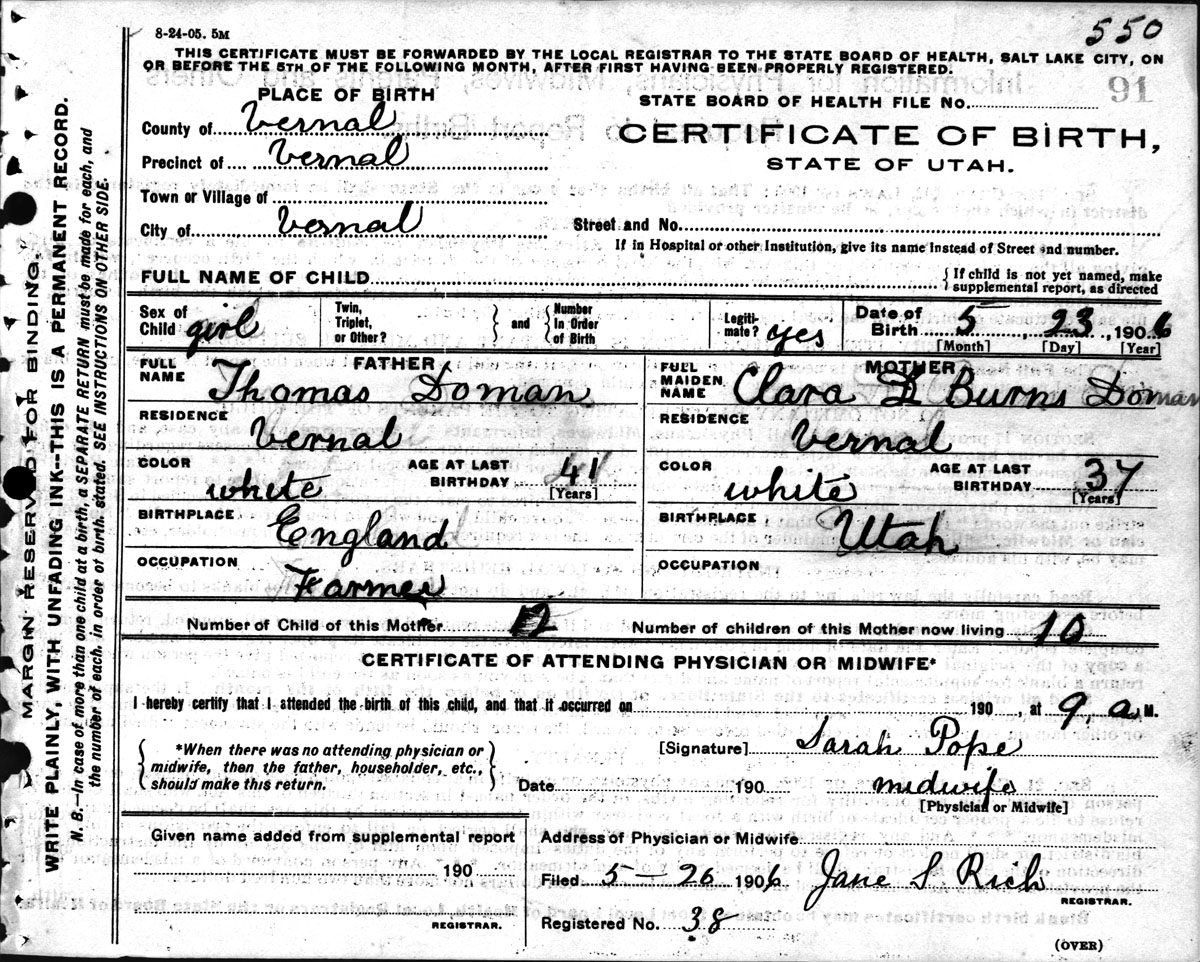 8-24-05. 5M
550
THIS CERTIFICATE MUST BE FORWARDED BY THE LOCAL REGISTRAR TO THE STATE BOARD OF HEALTH, SALT LAKE CITY, ON
OR BEFORE THE 5TH OF THE FOLLOWING MONTH, AFTER FIRST HAVING BEEN PROPERLY REGISTERED.
PLACE OF BIRTH
STATE BOARD OF HEALTH FILE No. 91
County of Vernal
CERTIFICATE OF BIRTH,
Precinct of Vernal
STATE OF UTAH.
Town or Village of
City of Vernal
Street and No.
If in Hospital or other Institution, give its name instead of Street and number.
FULL NAME OF CHILD
{ If child is not yet named, make
supplemental report, as directed
Sex of Child girl
Twin, Triplet, or Other? } and { Number In Order of Birth
Legiti-mate? yes
Date of Birth 5 23 1906
[Month] [Day] [Year]
FATHER
FULL NAME Thomas Doman
MOTHER
FULL MAIDEN NAME Clara D Burns Doman
RESIDENCE Vernal
RESIDENCE Vernal
COLOR white
AGE AT LAST BIRTHDAY 41 [Years]
COLOR white
AGE AT LAST BIRTHDAY 37 [Years]
BIRTHPLACE England
BIRTHPLACE Utah
OCCUPATION Farmer
OCCUPATION
Number of Child of this Mother 12
Number of children of this Mother now living 10
CERTIFICATE OF ATTENDING PHYSICIAN OR MIDWIFE*
I hereby certify that I attended the birth of this child, and that it occurred on 190 , at 9, a M.
{ *When there was no attending physician or
midwife, then the father, householder, etc.,
should make this return. }
[Signature] Sarah Pope
Date 190 midwife
[Physician or Midwife]
Given name added from supplemental report
190
REGISTRAR.
Address of Physician or Midwife
Filed 5-26 1906 Jane S Rich
REGISTRAR.
Registered No. 38
(OVER)
MARGIN RESERVED FOR BINDING.
WRITE PLAINLY, WITH UNFADING INK--THIS IS A PERMANENT RECORD.
N. B.—In case of more than one child at a birth, a SEPARATE RETURN must be made for each, and
the number of each, in order of birth, stated. SEE INSTRUCTIONS ON OTHER SIDE.